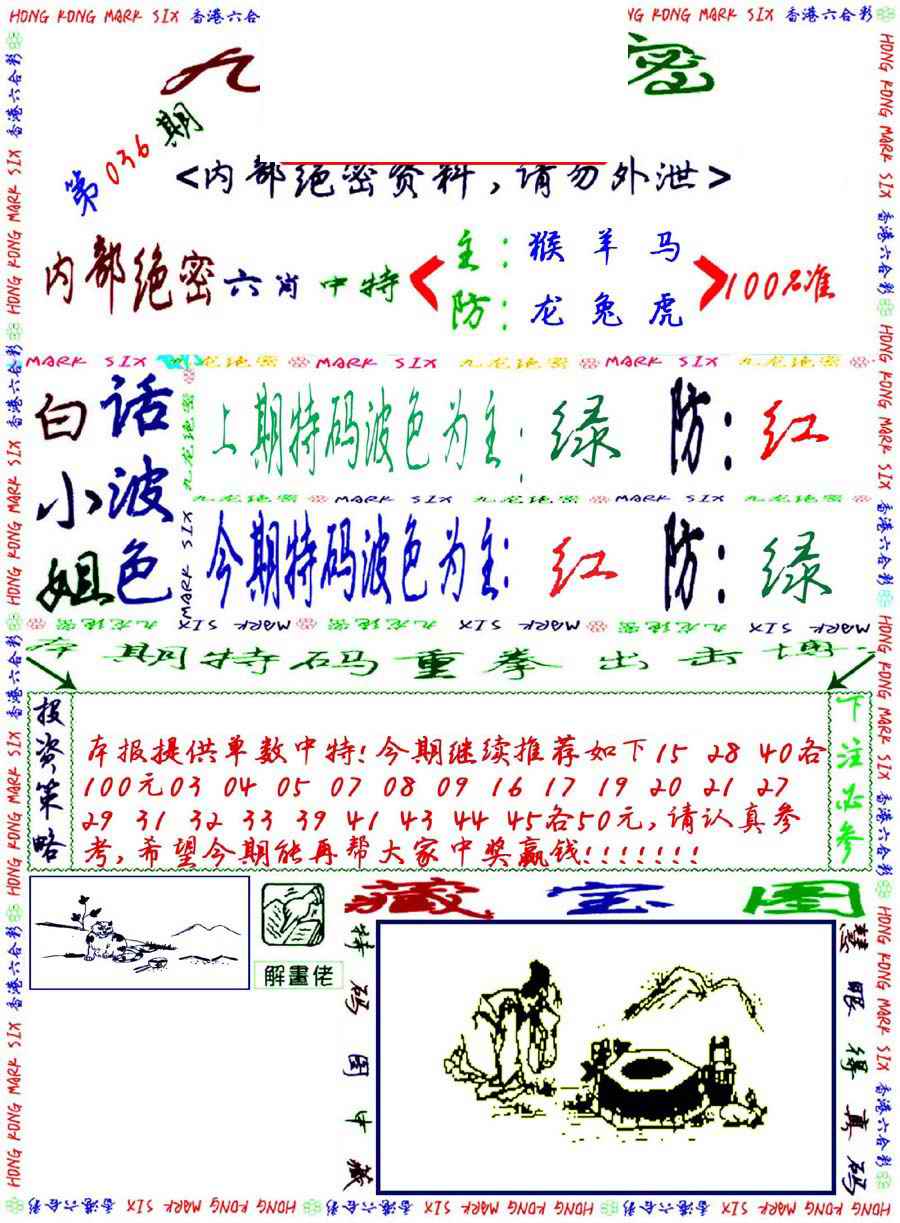 HONG KONG MARK SIX 香港六合
NG KONG MARK SIX 香港六合彩
九
密
第036期
<内部绝密资料,请勿外泄>
内部绝密六肖中特
主:猴羊马
防:龙兔虎
100%准
MARK SIX 九龙绝密 MARK SIX 九龙绝密 MARK SIX 九龙绝密
白话
小波
姐色
上期特码波色为主:绿 防:红
九龙绝密 MARK SIX 九龙绝密 MARK SIX 九龙绝密
今期特码波色为主:红 防:绿
MARK SIX 九龙绝密 MARK SIX 九龙绝密 MARK SIX
本期特码重拳出击博
投资策略
本报提供单数中特!今期继续推荐如下15 28 40各
100元03 04 05 07 08 09 16 17 19 20 21 27
29 31 32 33 39 41 43 44 45各50元,请认真参
考,希望今期能再帮大家中奖赢钱!!!!!!!
下注必参
解畫佬
藏宝图
特码图中藏
慧眼得真码
HONG KONG MARK SIX 香港六合彩 HONG KONG MARK SIX 香港六合彩 HONG KONG MARK SIX 香港六合彩